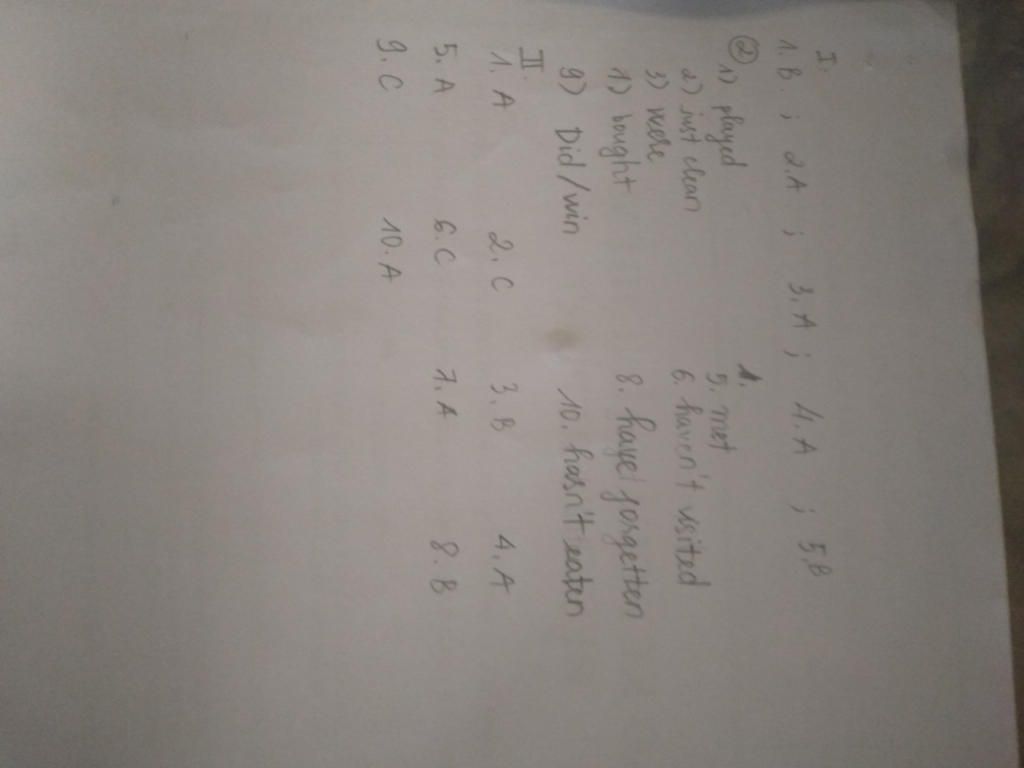 I.
1. B. ; 2. A ; 3. A ; 4. A ; 5. B
②
1) played 5. met
2) just clean 6. haven't visited
3) were
1) bought 8. have/forgetten
9) Did/win 10. hasn't eaten
II.
1. A 2. C 3. B 4. A
5. A 6. C 7. A 8. B
9. C 10. A